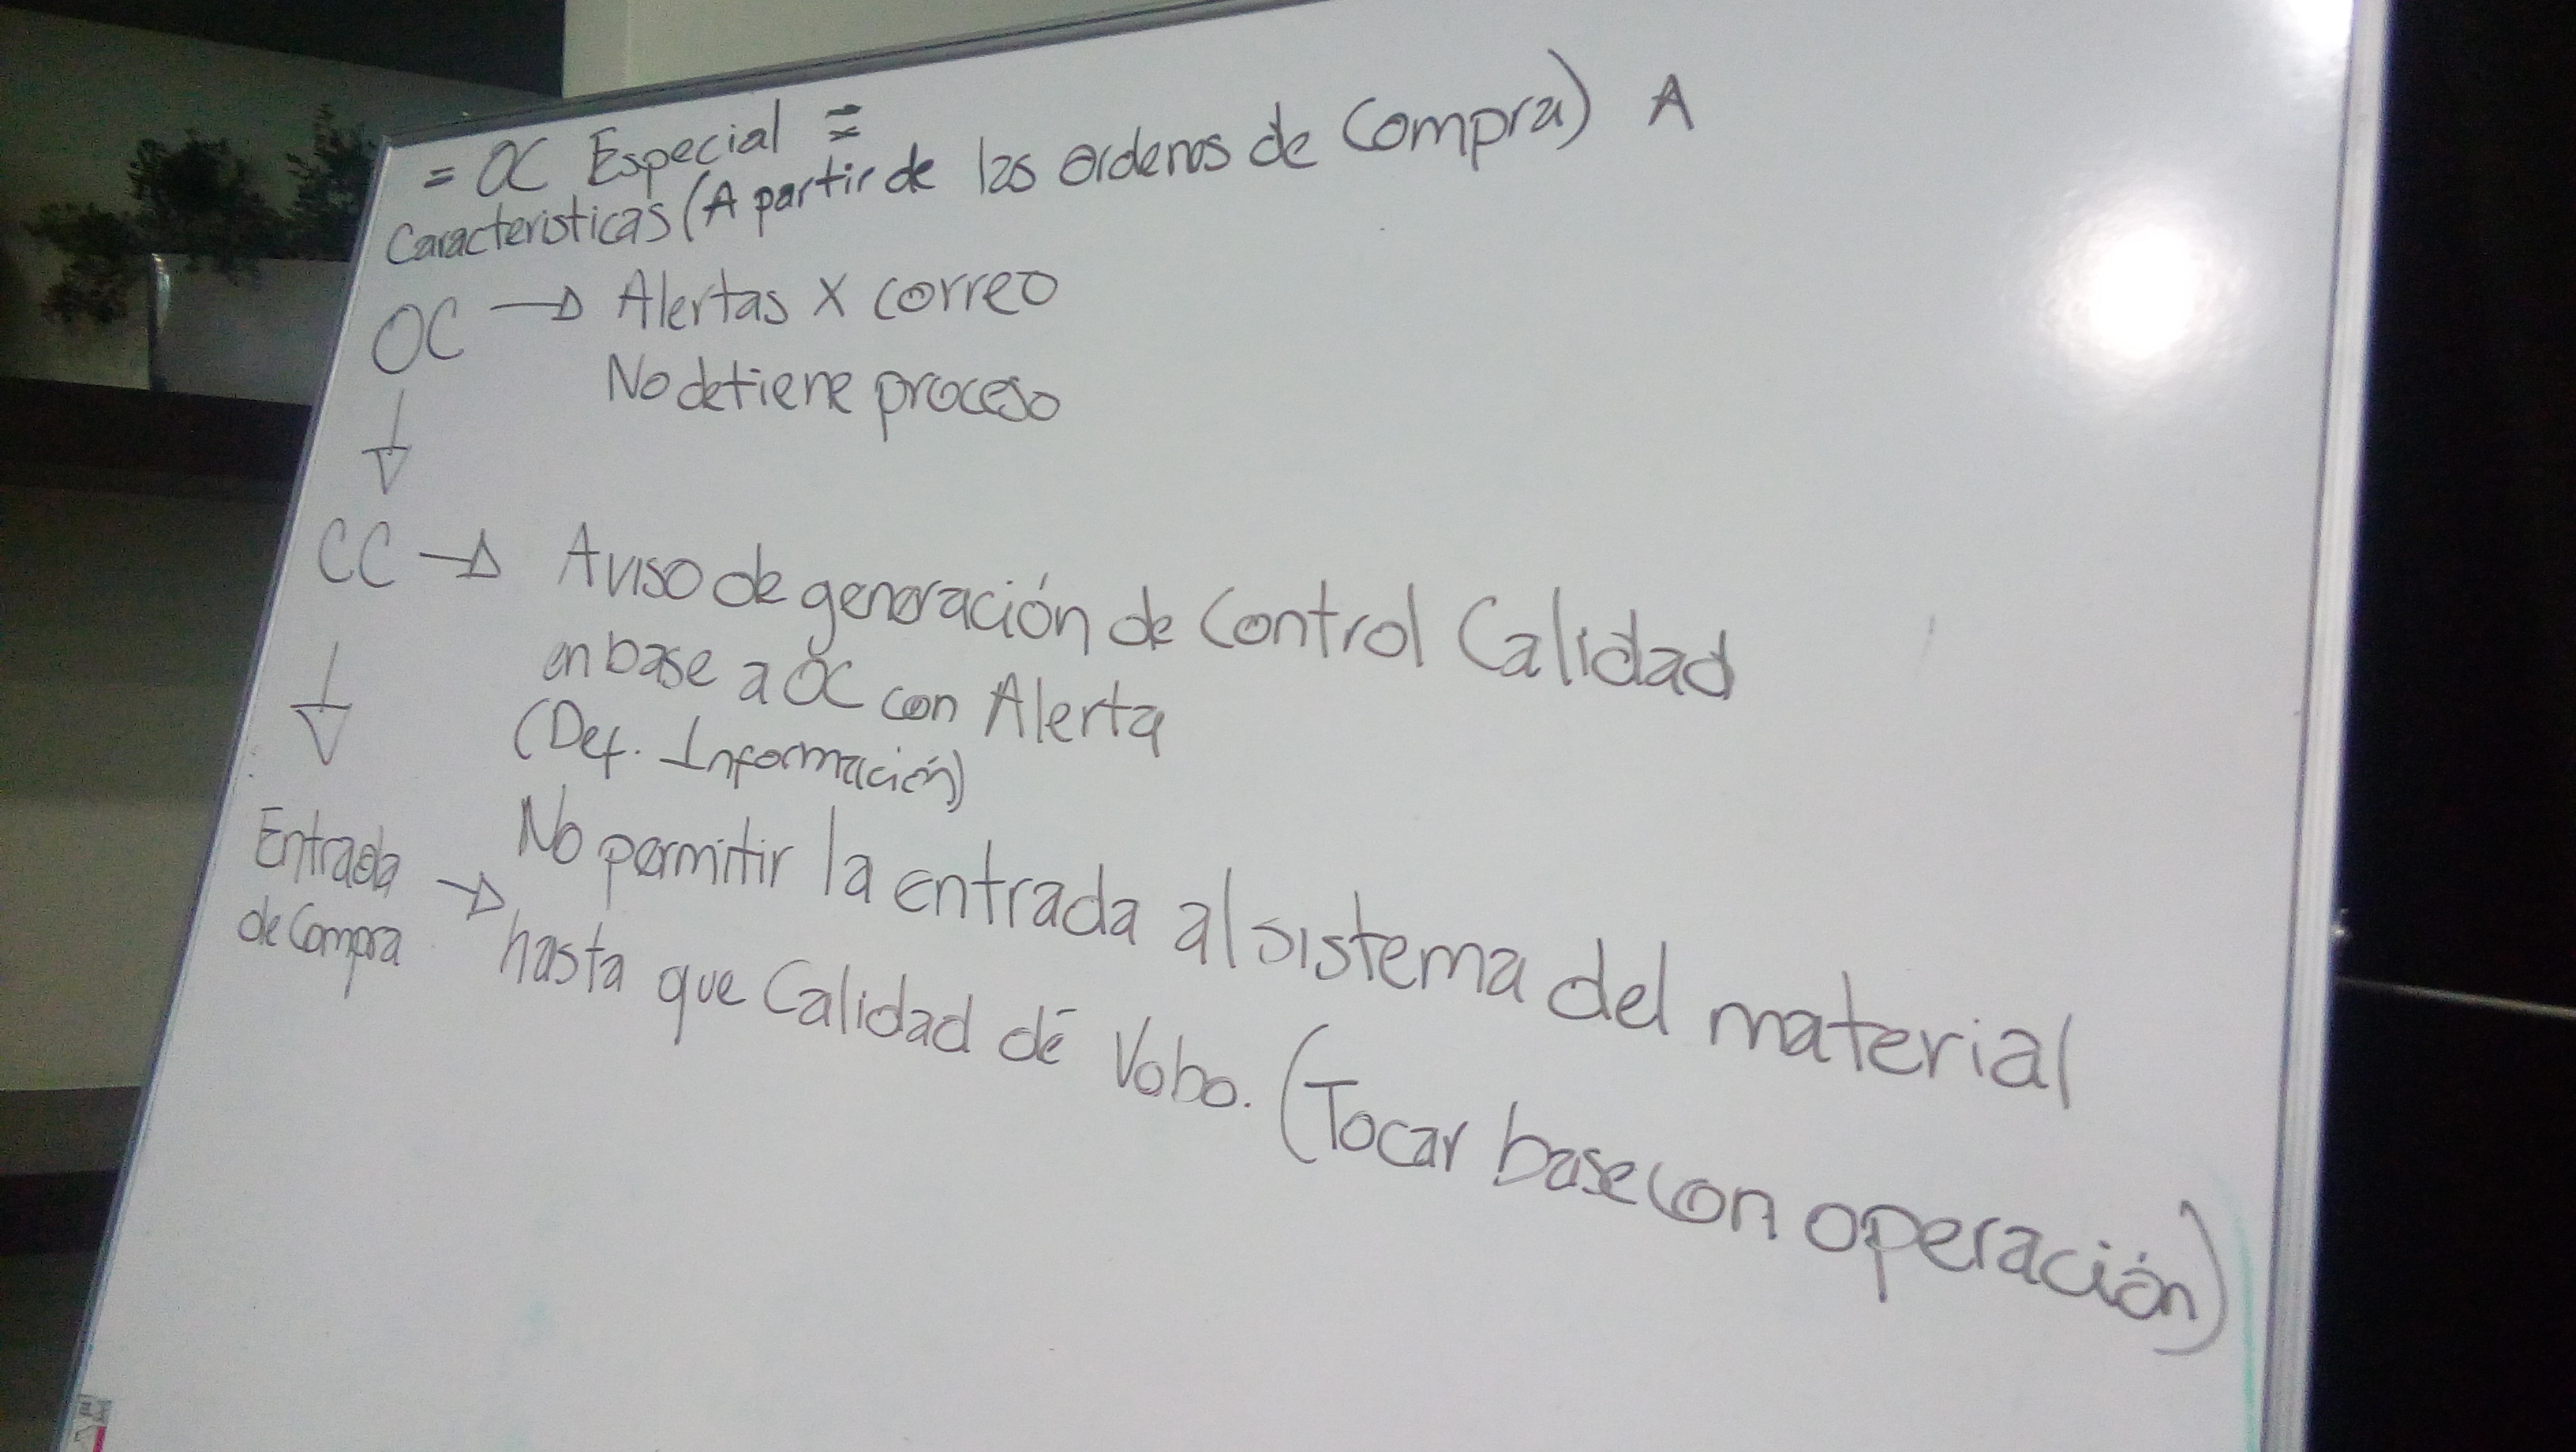 = OC Especial =
Caracteristicas (A partir de las ordenes de Compra) A
OC → Alertas x correo
No detiene proceso
↓
CC → Aviso de generación de Control Calidad
en base a OC con Alerta
(Def. Información)
↓
Entrada de Compra → No permitir la entrada al sistema del material
hasta que Calidad dé Vobo. (Tocar base con operación)